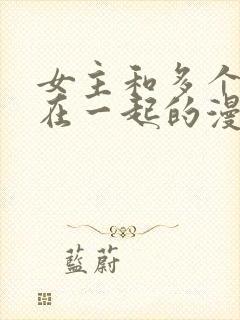 女主和多个
在一起的漫
藍蔚